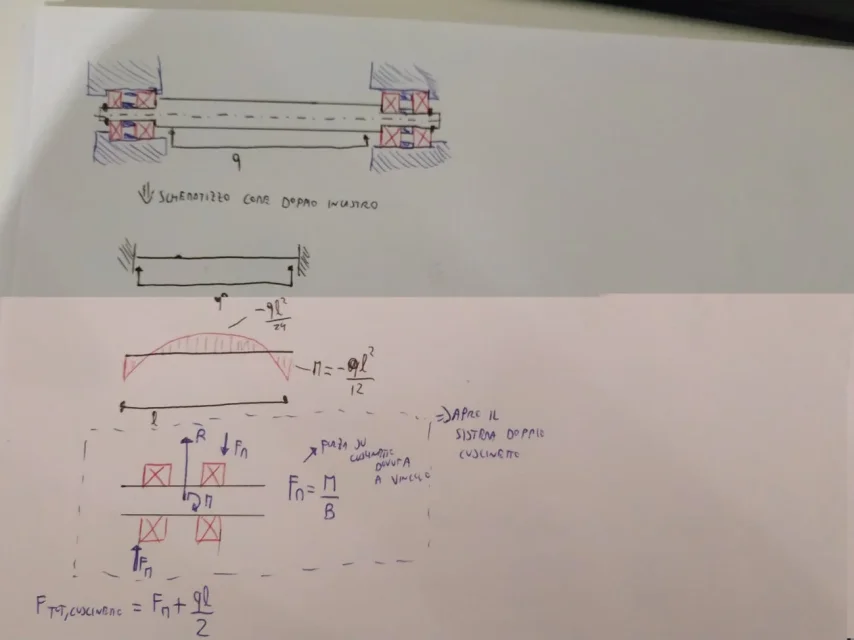 q
⇓ SCHEMATIZZO COME DOPPIO INCASTRO
q
-ql²/24
M = -ql²/12
l
⇒ APRO IL
SISTEMA DOPPIO
CUSCINETTO
R
F_M
M
F_M
FORZA SU
CUSCINETTO
DOVUTA
A VINCOLO
F_M = M/B
F_TOT,CUSCINETTO = F_M + ql/2